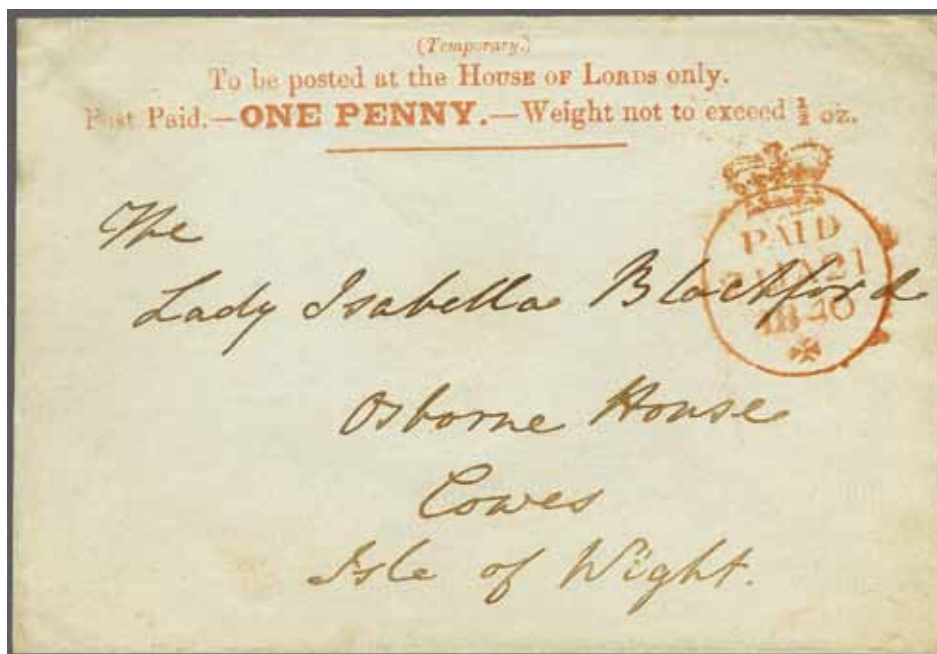 (Temporary.)
To be posted at the HOUSE OF LORDS only.
Post Paid.—ONE PENNY.—Weight not to exceed ½ oz.
PAID
21
1840
The
Lady Isabella Blachford
Osborne House
Cowes
Isle of Wight.